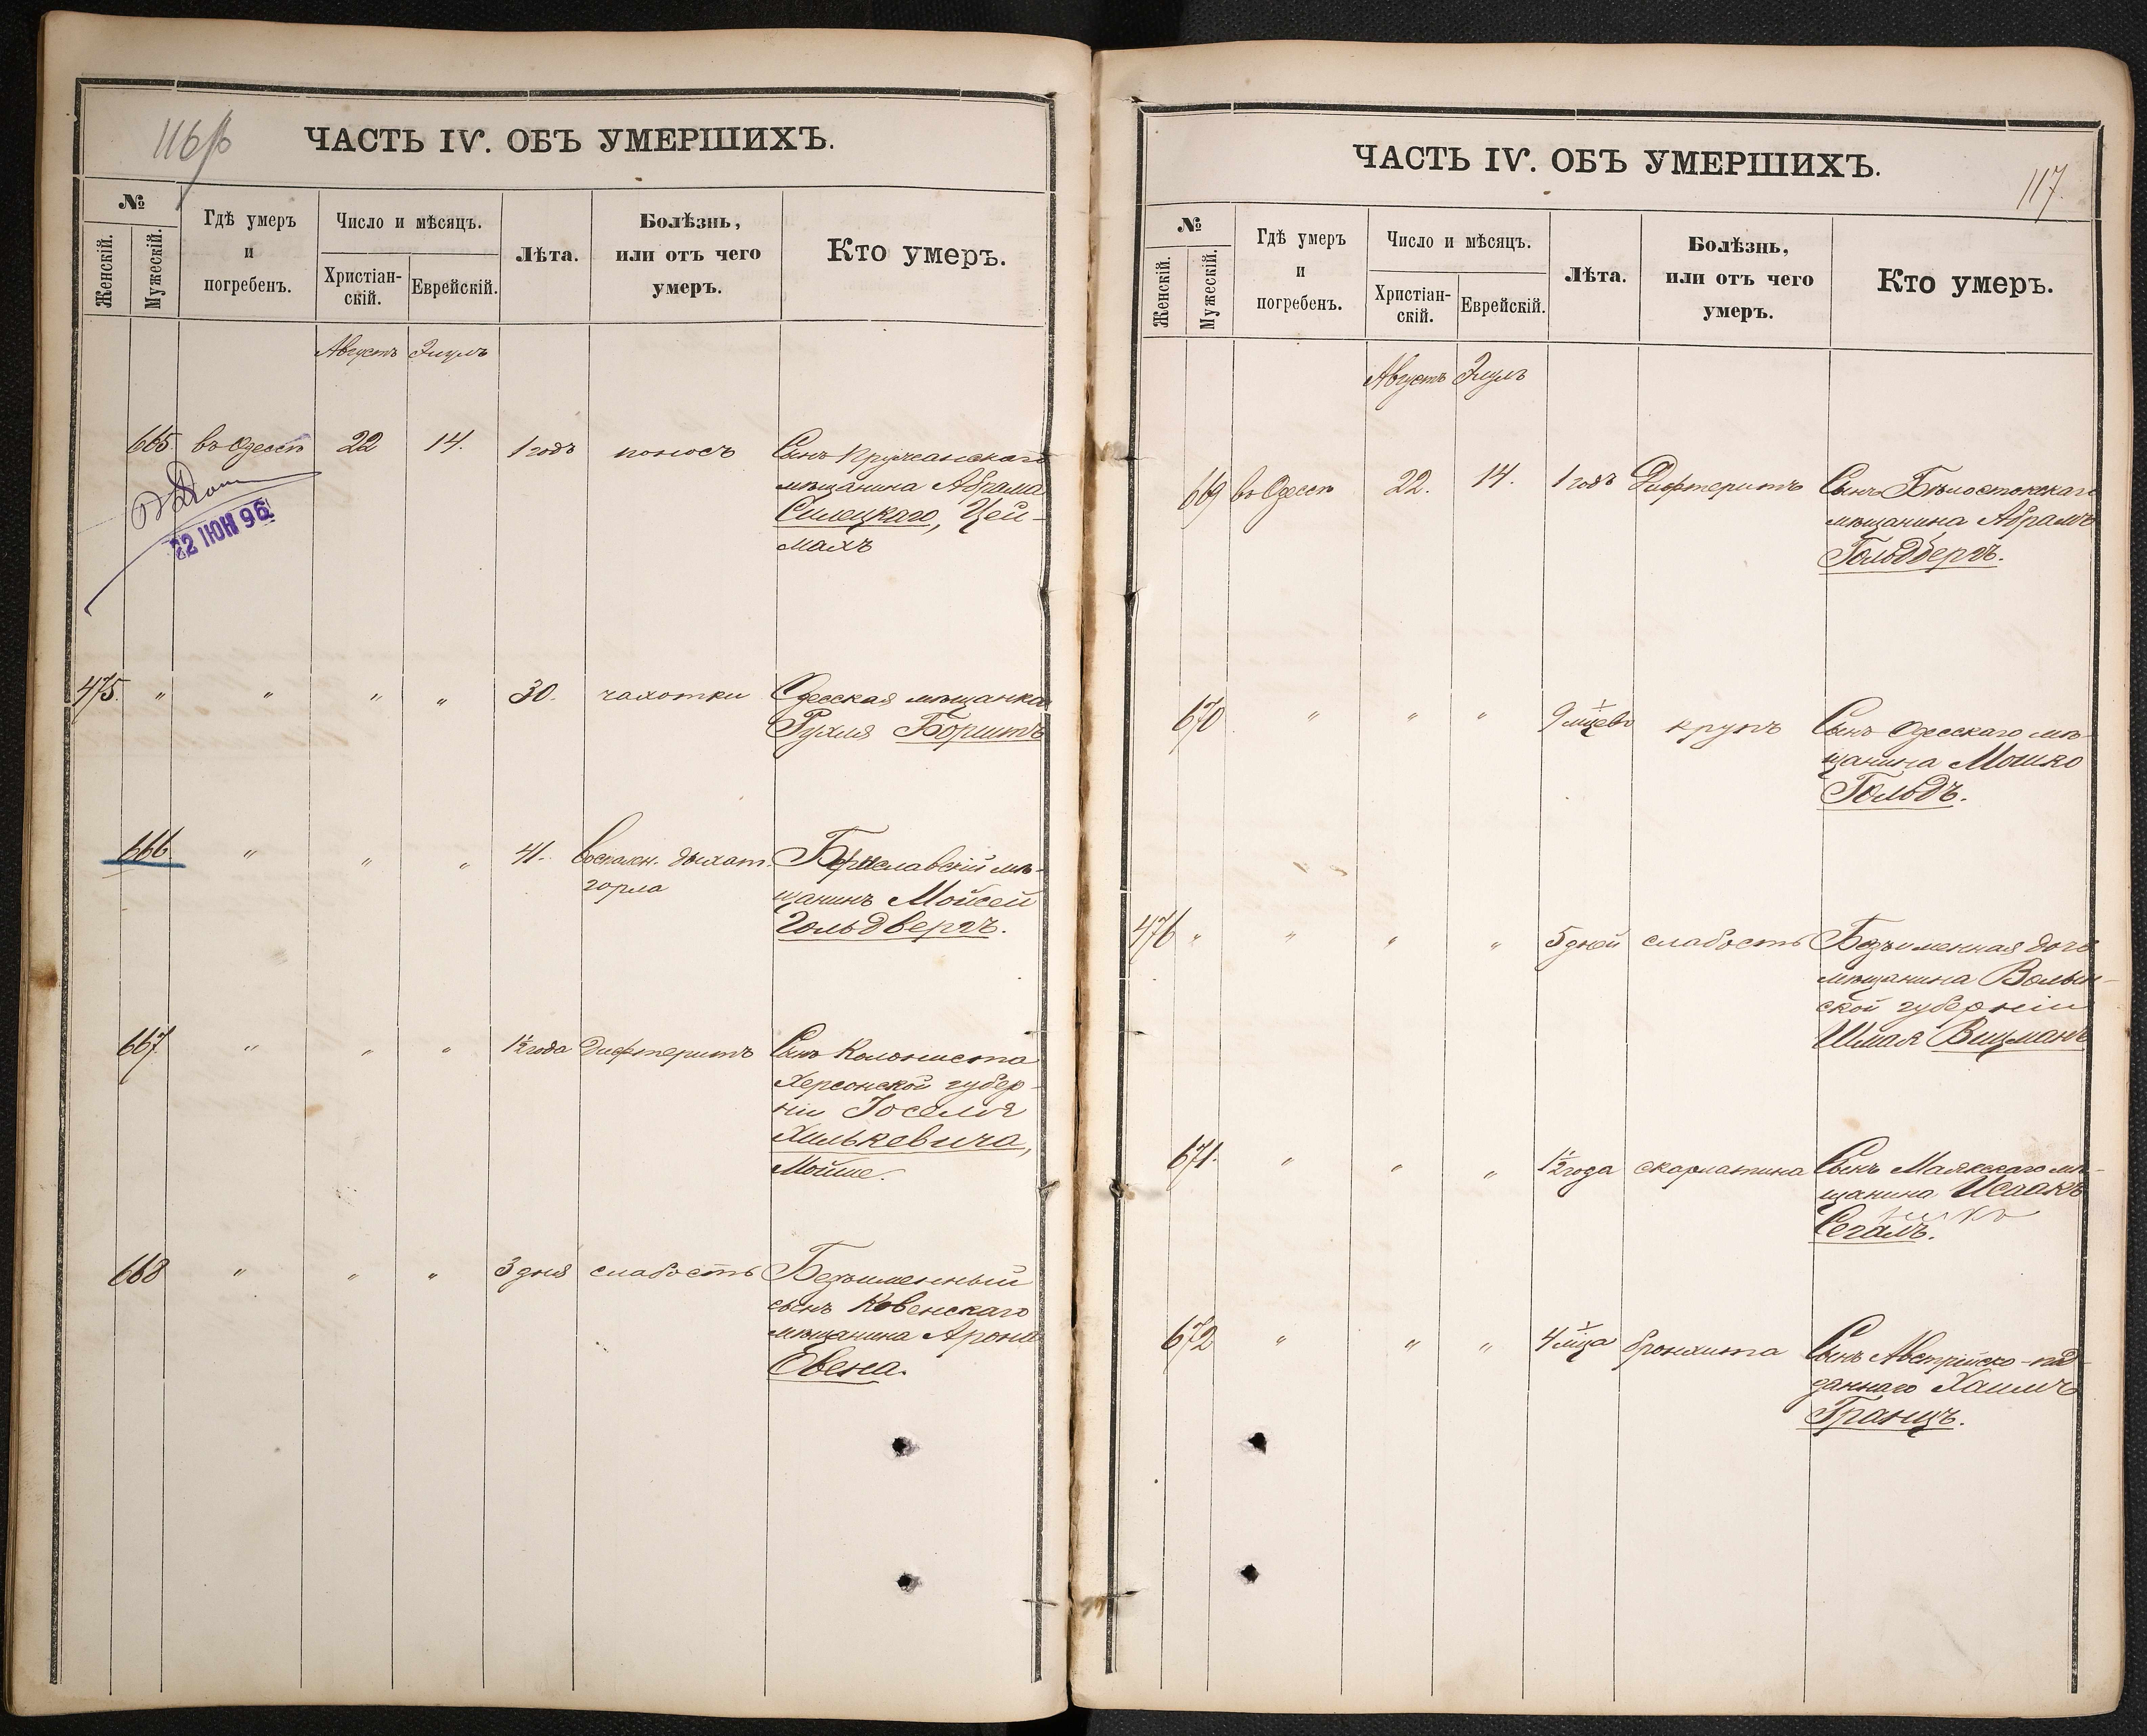 116 об
ЧАСТЬ IV. ОБЪ УМЕРШИХЪ.
№
Женскій.
Мужескій.
Гдѣ умеръ
и
погребенъ.
Число и мѣсяцъ.
Христіан-
скій.
Еврейскій.
Лѣта.
Болѣзнь,
или отъ чего
умеръ.
Кто умеръ.
Августъ Элулъ
665. въ Одессѣ 22 14. 1 годъ поносъ Сынъ Пружанскаго
мѣщанина Абрама
Силецкаго, Цей-
махъ
22 ІЮН 96
475. " " " " 30. чахотки Одесская мѣщанка
Рухля Борштъ
666 " " " 41. Воспален. дыхат. Бериславскій мѣ-
горла
щанинъ Мойсей
Гольдбергъ.
667. " " " 1½ года Дифтеритъ Сынъ Колониста
Херсонской губер-
ніи Іоселя
Хилькевича,
Мойше.
668 " " " 3 дня слабость Безъименный
сынъ Ковенскаго
мѣщанина Арона
Евена.
ЧАСТЬ IV. ОБЪ УМЕРШИХЪ.
117.
№
Женскій.
Мужескій.
Гдѣ умеръ
и
погребенъ.
Число и мѣсяцъ.
Христіан-
скій.
Еврейскій.
Лѣта.
Болѣзнь,
или отъ чего
умеръ.
Кто умеръ.
Августъ Элулъ
669 въ Одессѣ 22. 14. 1 годъ Дифтеритъ Сынъ Бѣлостокскаго
мѣщанина Абрамъ
Гольдбергъ.
670 " " " 9 мцевъ крупъ Сынъ Одесскаго мѣ-
щанина Мошко
Гольдъ.
476 " " " " 5 дней слабость Безъименная дочь
мѣщанина Волын-
ской губерніи
Шмая Вицманъ
671. " " " 1½ года скарлатина Сынъ Маякскаго мѣ-
щанина Исаакъ
Сегалъ.
672 " " " 4 мца бронхита Сынъ Австрійско-под-
даннаго Хаимъ
Границъ.